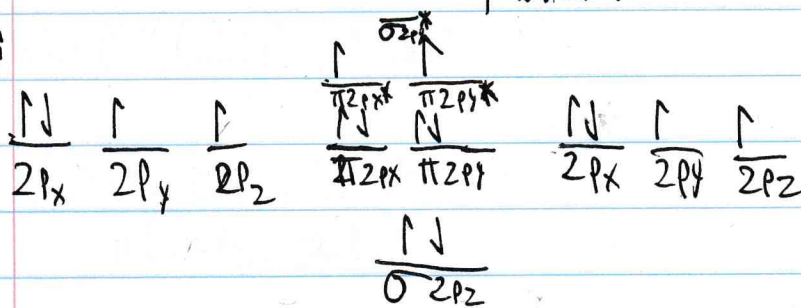 σ2p*
↿ ↿
π2px* π2py*
↿⇂ ↿ ↿ ↿⇂ ↿⇂ ↿⇂ ↿ ↿
2px 2py 2pz π2px π2py 2px 2py 2pz
↿⇂
σ2pz